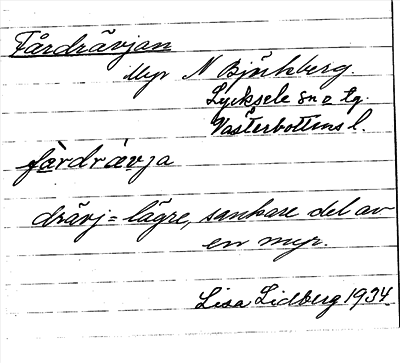 Fårdrävjan
Myr N Björkberg.
Lycksele sn o tg.
Västerbottens l.
fàrdrävja
drävj = lägre, sankare del av
en myr.
Lisa Lidberg 1934.